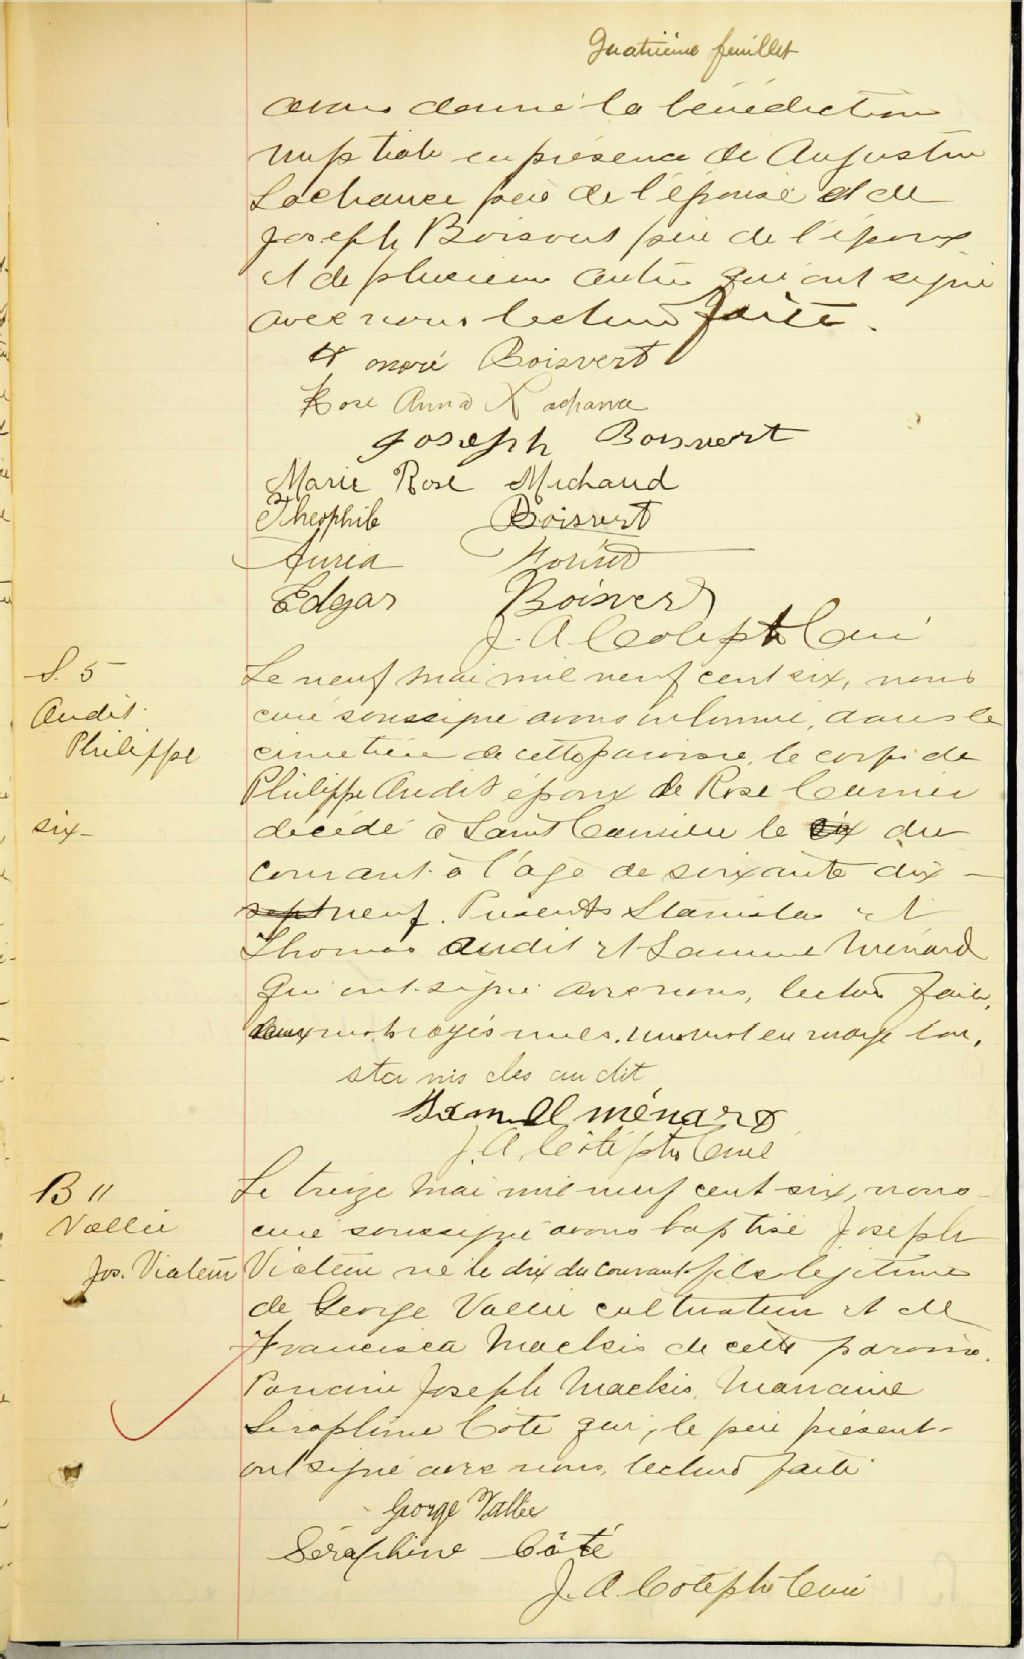 Quatrième feuillet
avons donné la bénédiction
nuptiale en présence de Augustin
Lachance père de l'épouse et de
Joseph Boisvert père de l'époux
et de plusieurs autres qui ont signé
avec nous lecture faite.
Honoré Boisvert
Rose Anna Lachance
Joseph Boisvert
Marie Rose Michaud
Theophile Boisvert
Auréa
Edgar Boisvert
J. A. Côté ptre Curé
S. 5
Audit
Philippe
Le neuf mai mil neuf cent six, nous
curé soussigné avons inhumé, dans le
cimetière de cette paroisse, le corps de
Philippe Audit époux de Rose Carrier
six
décédé à Saint Camille le six du
courant à l'age de soixante dix
sept neuf. Présents Stanislas et
Thomas Audit et Samuel Ménard
qui ont signé avec nous, lecture faite,
deux mots rayés nuls, un mot en marge bon.
sta nis clas au dit
Samuel ménard
J. A. Côté ptre Curé
B 11
Vallée
Jos. Viateur
Le treize mai mil neuf cent six, nous
curé soussigné avons baptisé Joseph
Viateur né le dix du courant fils légitime
de George Vallée cultivateur et de
Francisca Mackis de cette paroisse.
Parrain Joseph Mackis, Marraine
Séraphine Côté qui, le père présent
ont signé avec nous, lecture faite.
George Vallée
Séraphine Côté
J. A. Côté ptre Curé